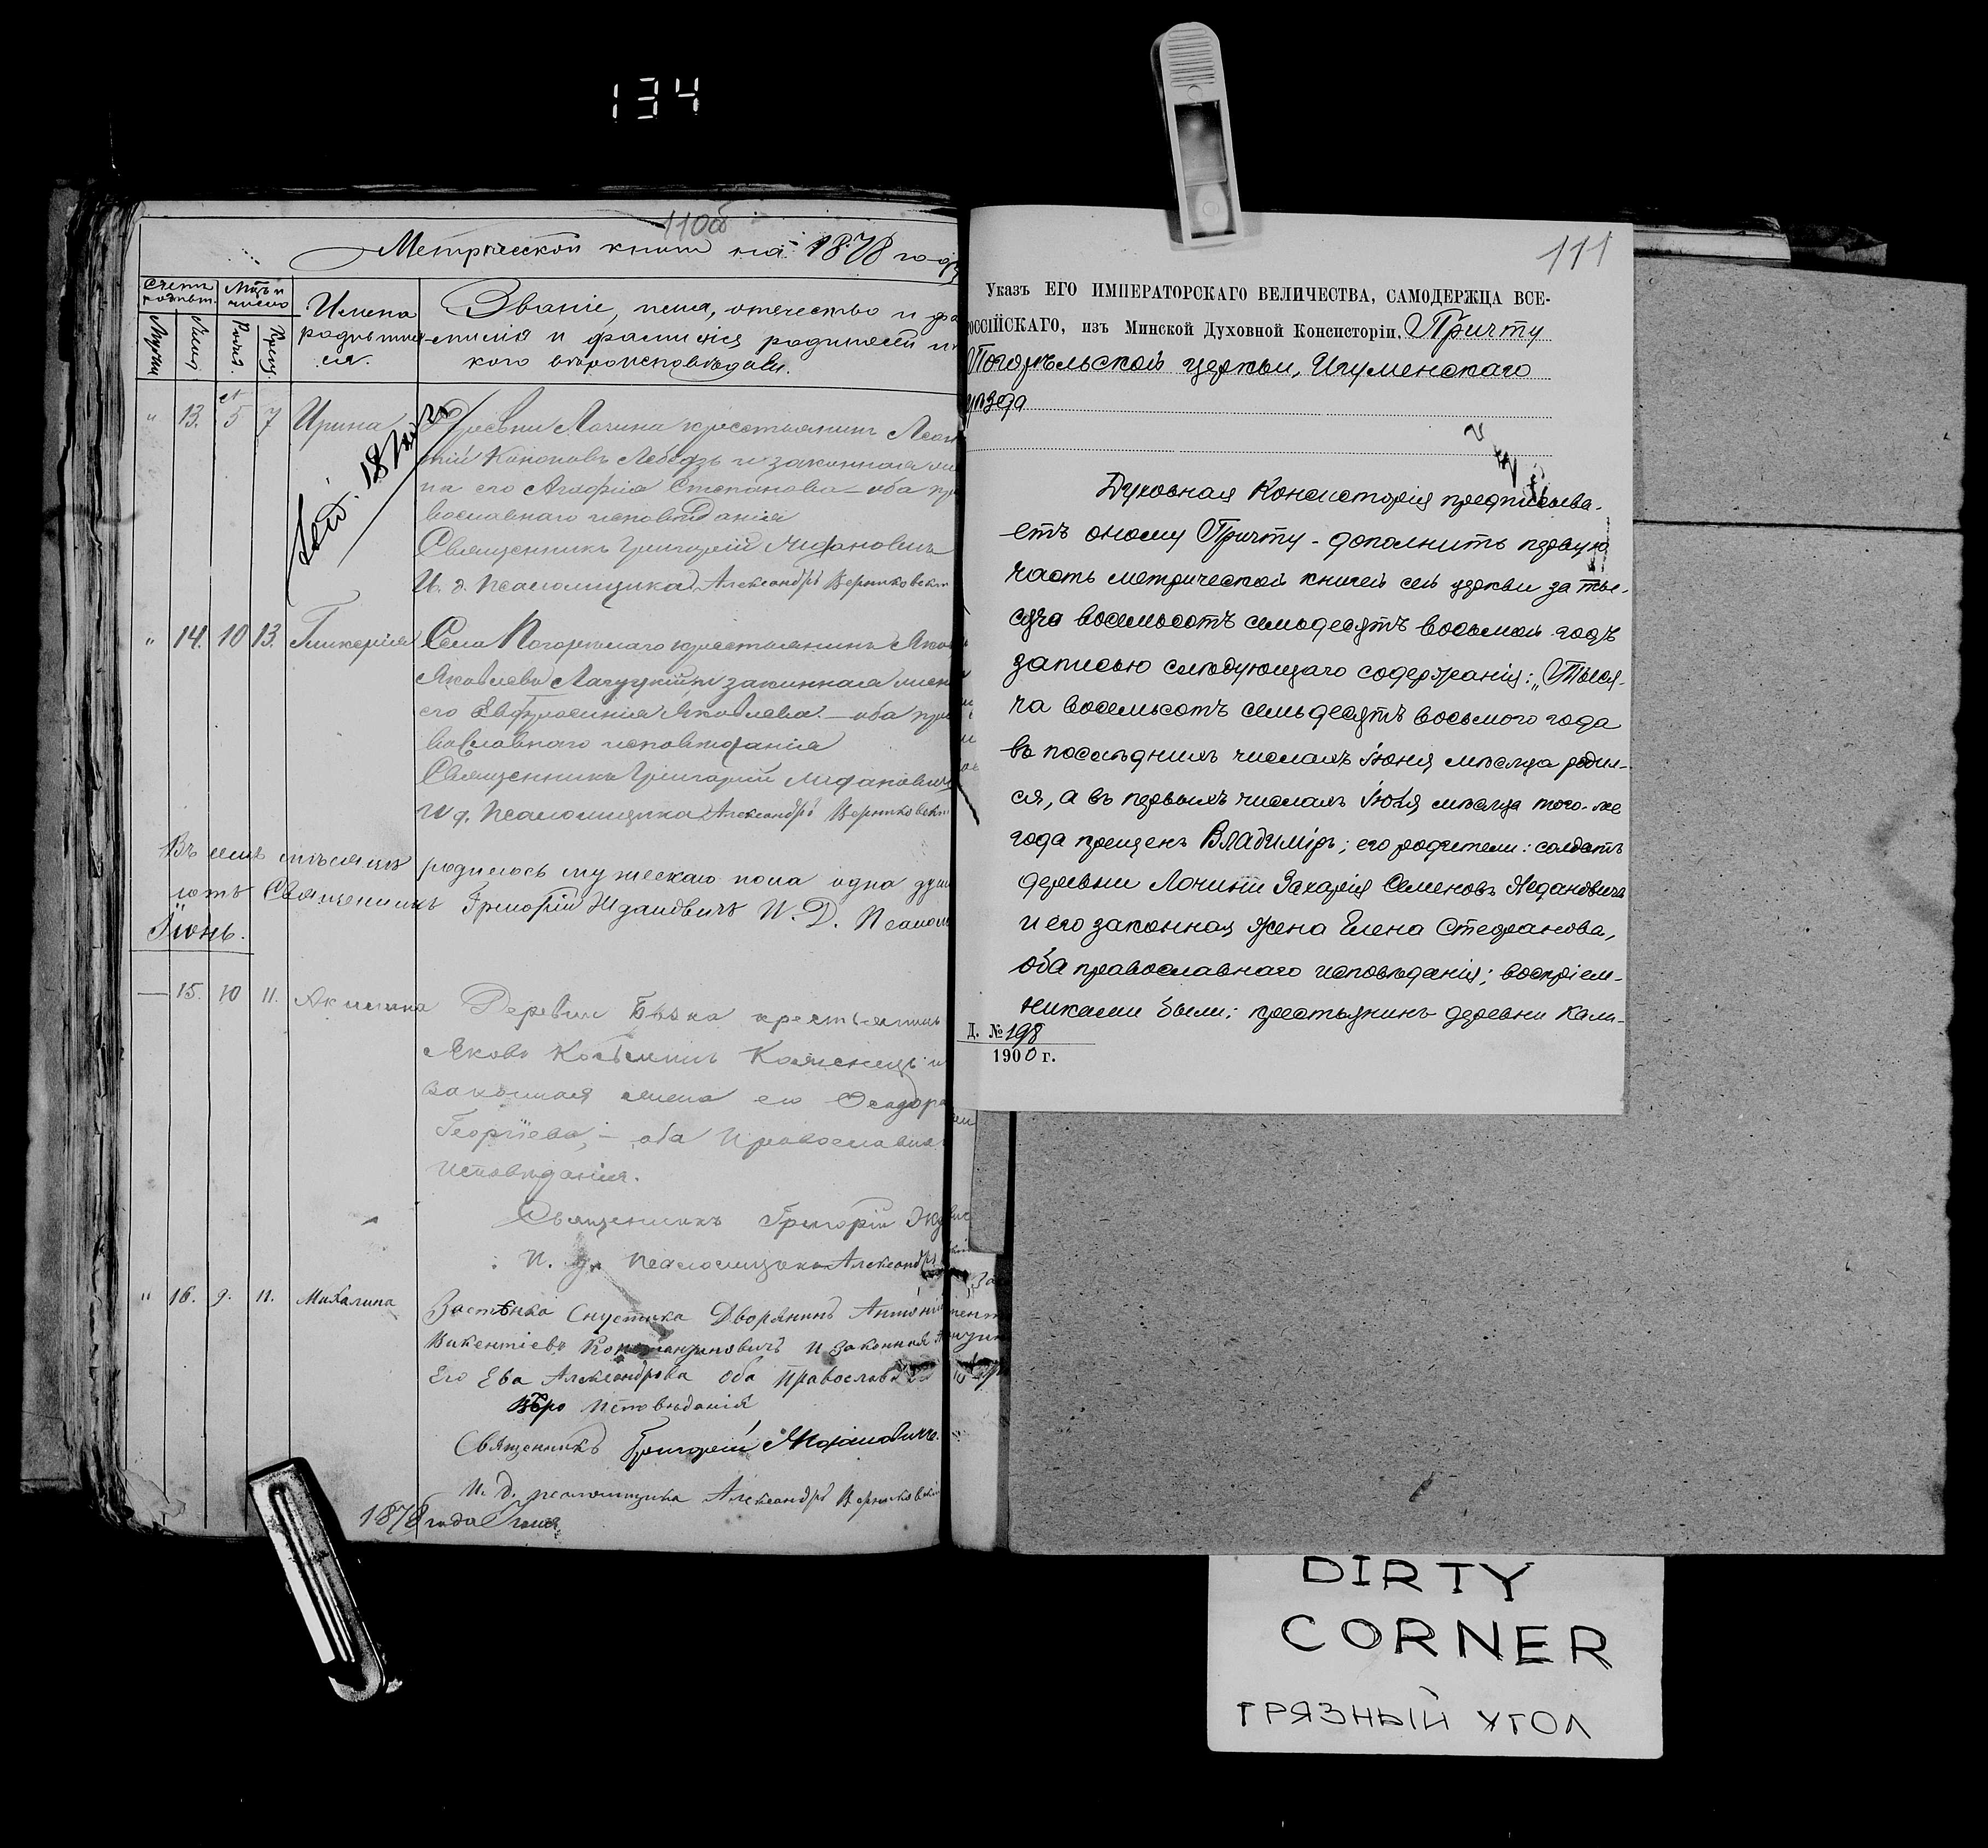 134
110об
Метрической книги на 1878 годъ
Счетъ родивш.
Мѣц. и число
Мужеск.
Женск.
Рожд.
Крещ.
Имена родившихся.
Званіе, имя, отчество и фамилія родителей и какого вѣроисповѣданія.
" 13. 5 7 Ирина
Деревни Лочина крестьянинъ
Кононовъ Лебедзь и законная
его Агафія Степанова – оба
вославнаго исповѣданія
Священникъ Григорій Ждановичъ
И. д. псаломщика Александръ
" 14. 10 13. Гликерія Села Погорѣлаго крестьянинъ
Яковлевъ и законная жена
его Евфросинія Яковлева – оба
вославнаго исповѣданія
Священникъ Григорій Ждановичъ
И д. Псаломщика Александръ
Въ семъ мѣсяцѣ родилось мужескаго пола одна
Священникъ Григорій Ждановичъ И. Д.
Іюнь.
— 15. 10 11. Акилина Деревни крестьянинъ
Яковъ и
законная жена его Ѳеодора
Георгіева, – оба Православнаго
исповѣданія.
Священникъ Григорій
И. д. Псаломщика Александръ
" 16. 9. 11. Михалина Застѣнка Дворянинъ Антоній
Викентіевъ и законная
Его Ева Александрова оба православ
Вѣро исповѣданія
Священникъ Григорій Ждановичъ.
И. д. псаломщика Александръ
1878 года Іюня
111
Указъ ЕГО ИМПЕРАТОРСКАГО ВЕЛИЧЕСТВА, САМОДЕРЖЦА ВСЕ-
РОССІЙСКАГО, изъ Минской Духовной Консисторіи, Причту
Погорѣльской церкви, Игуменскаго
уѣзда
Духовная Консисторія предписыва-
етъ оному Причту – дополнить первую
часть метрической книги сей церкви за ты-
сяча восемьсотъ семьдесятъ восьмой годъ
записью слѣдующаго содержанія: „Тыся-
ча восемьсотъ семьдесятъ восьмого года
въ послѣднихъ числахъ іюня мѣсяца родил-
ся, а въ первыхъ числахъ іюля мѣсяца того-же
года крещенъ Владиміръ; его родители: солдатъ
деревни Лочинъ Захарія Семеновъ Ждановичъ
и его законная жена Елена Стефанова,
оба православнаго исповѣданія; воспріем-
никами были: крестьянинъ деревни Кали-
Д. № 198
1900 г.
DIRTY
CORNER
ГРЯЗНЫЙ УГОЛ